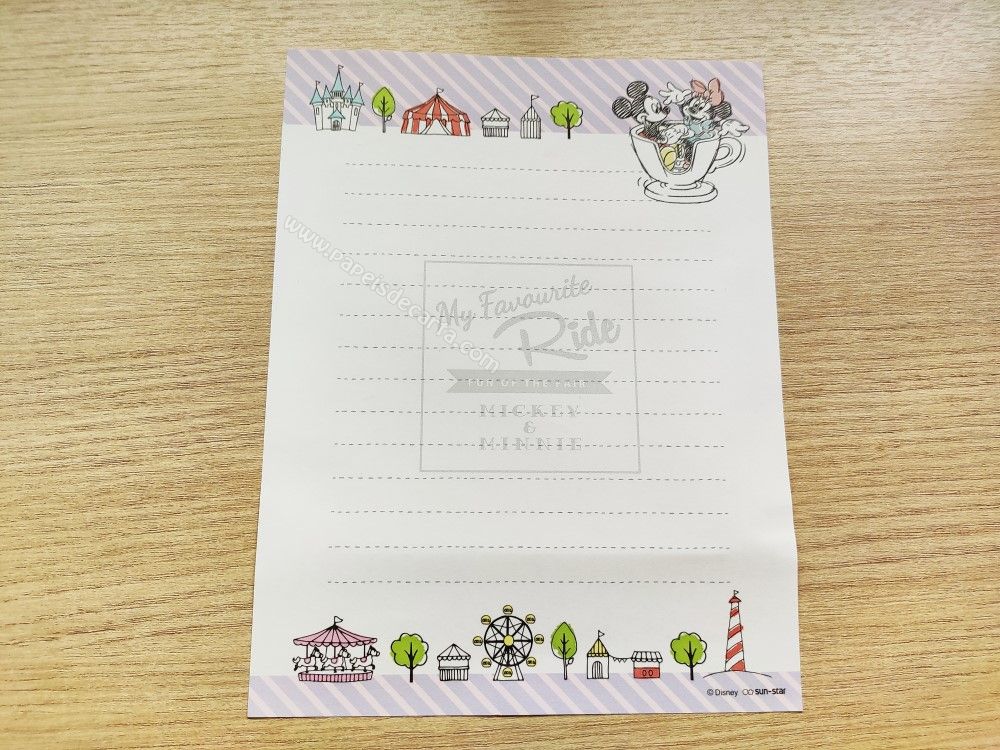 www.papeisdecarta.com
My Favourite
Ride
FUN OF THE FAIR
MICKEY
&
MINNIE
© Disney sun-star